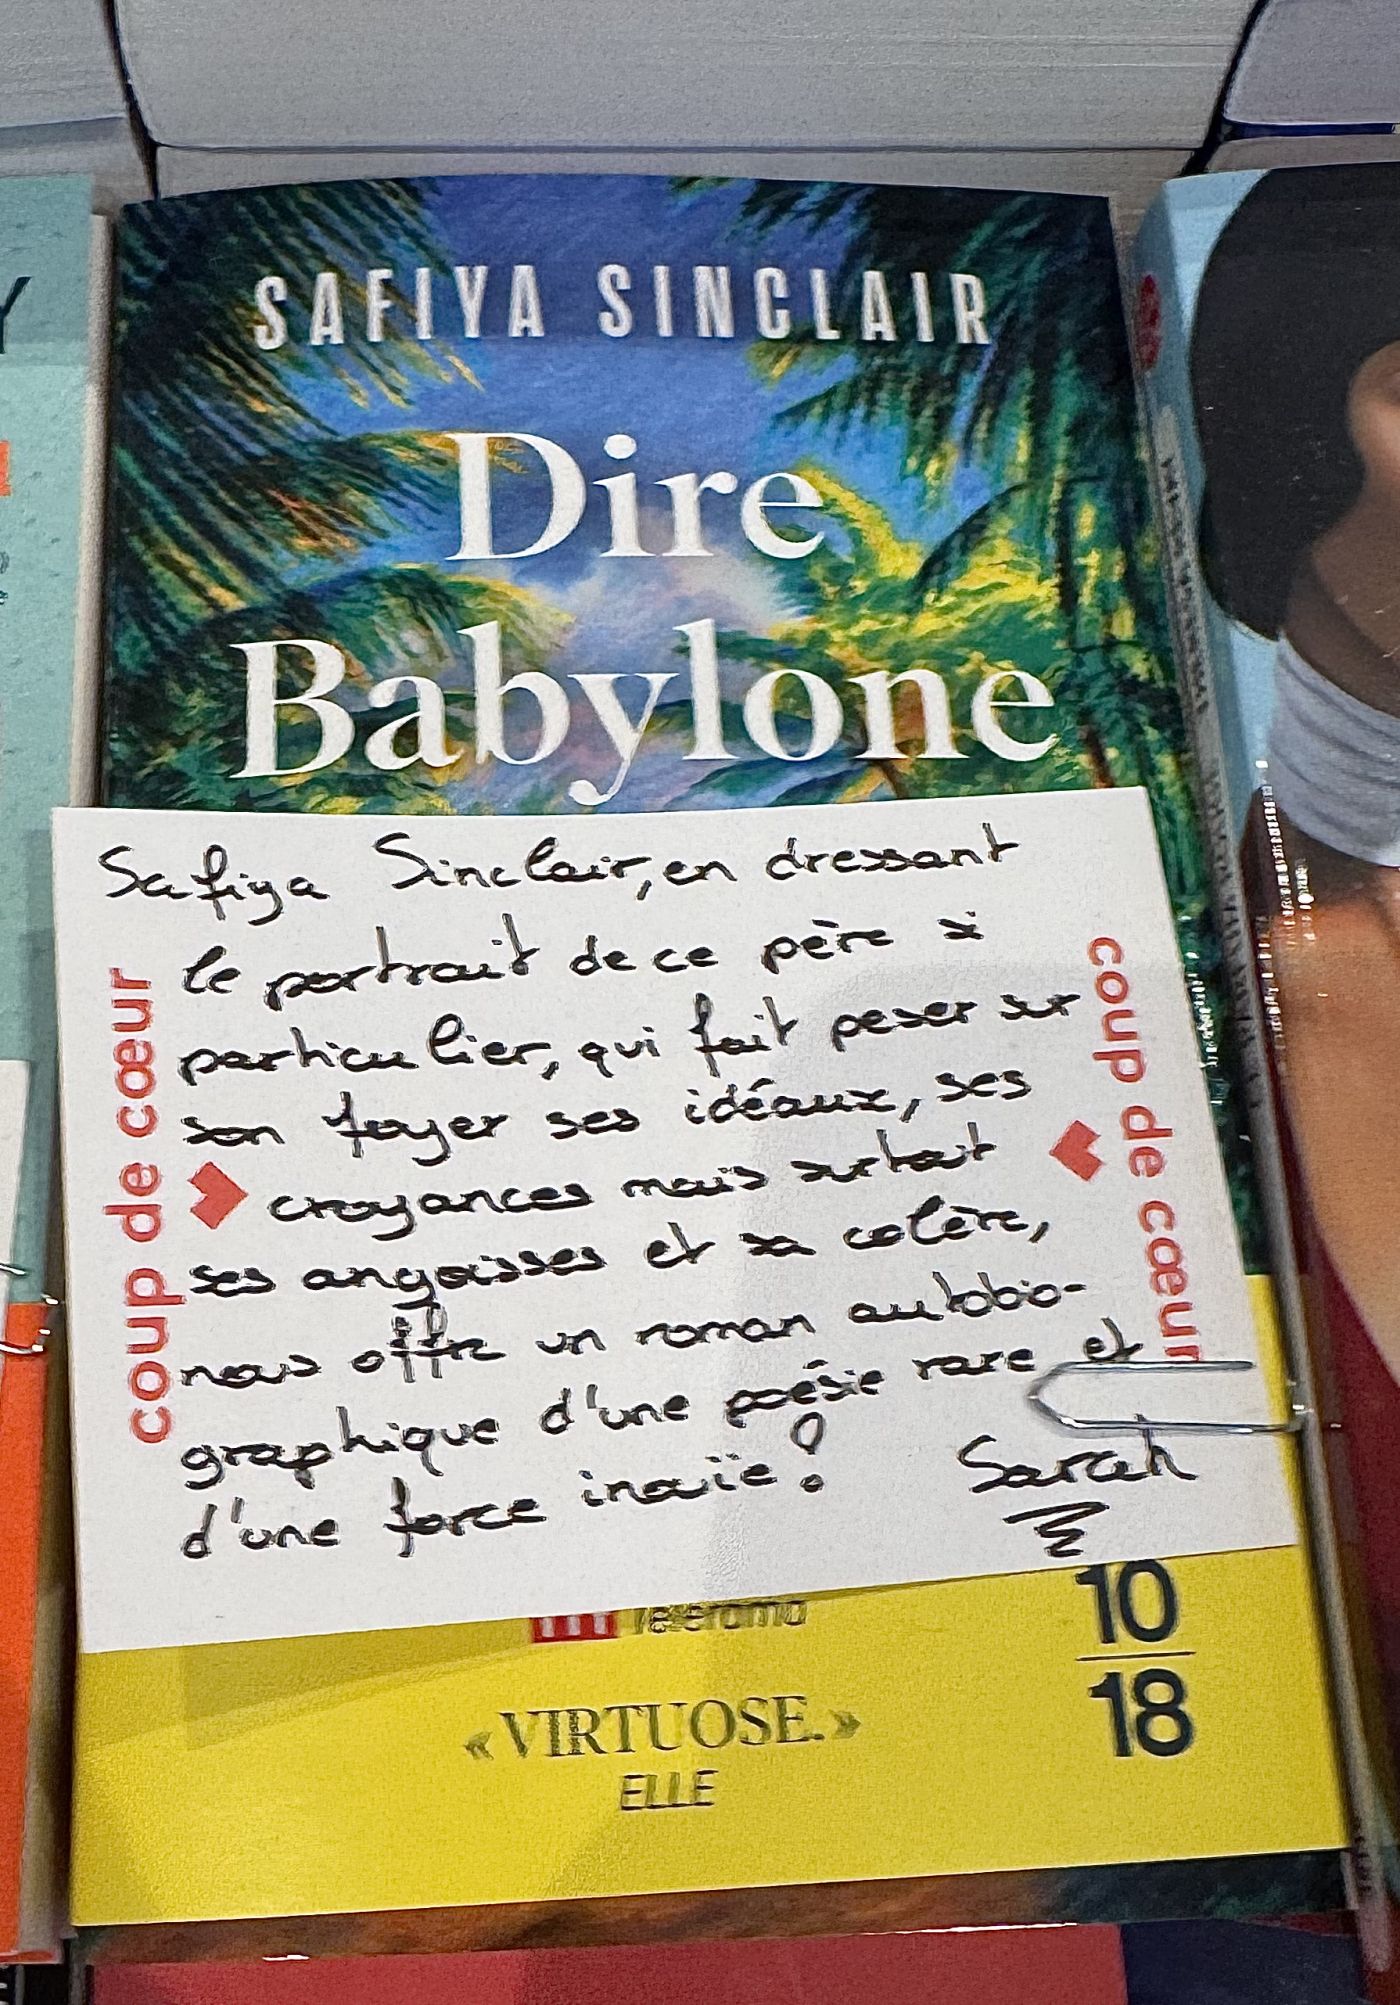 SAFIYA SINCLAIR
Dire
Babylone
Safiya Sinclair, en dressant
le portrait de ce père si
particulier, qui fait peser sur
son foyer ses idéaux, ses
croyances mais surtout
ses angoisses et sa colère,
nous offre un roman autobio-
graphique d'une poésie rare et
d'une force inouïe !
Sarah
coup de cœur
coup de cœur
Télérama
« VIRTUOSE. »
ELLE
10
18
Y